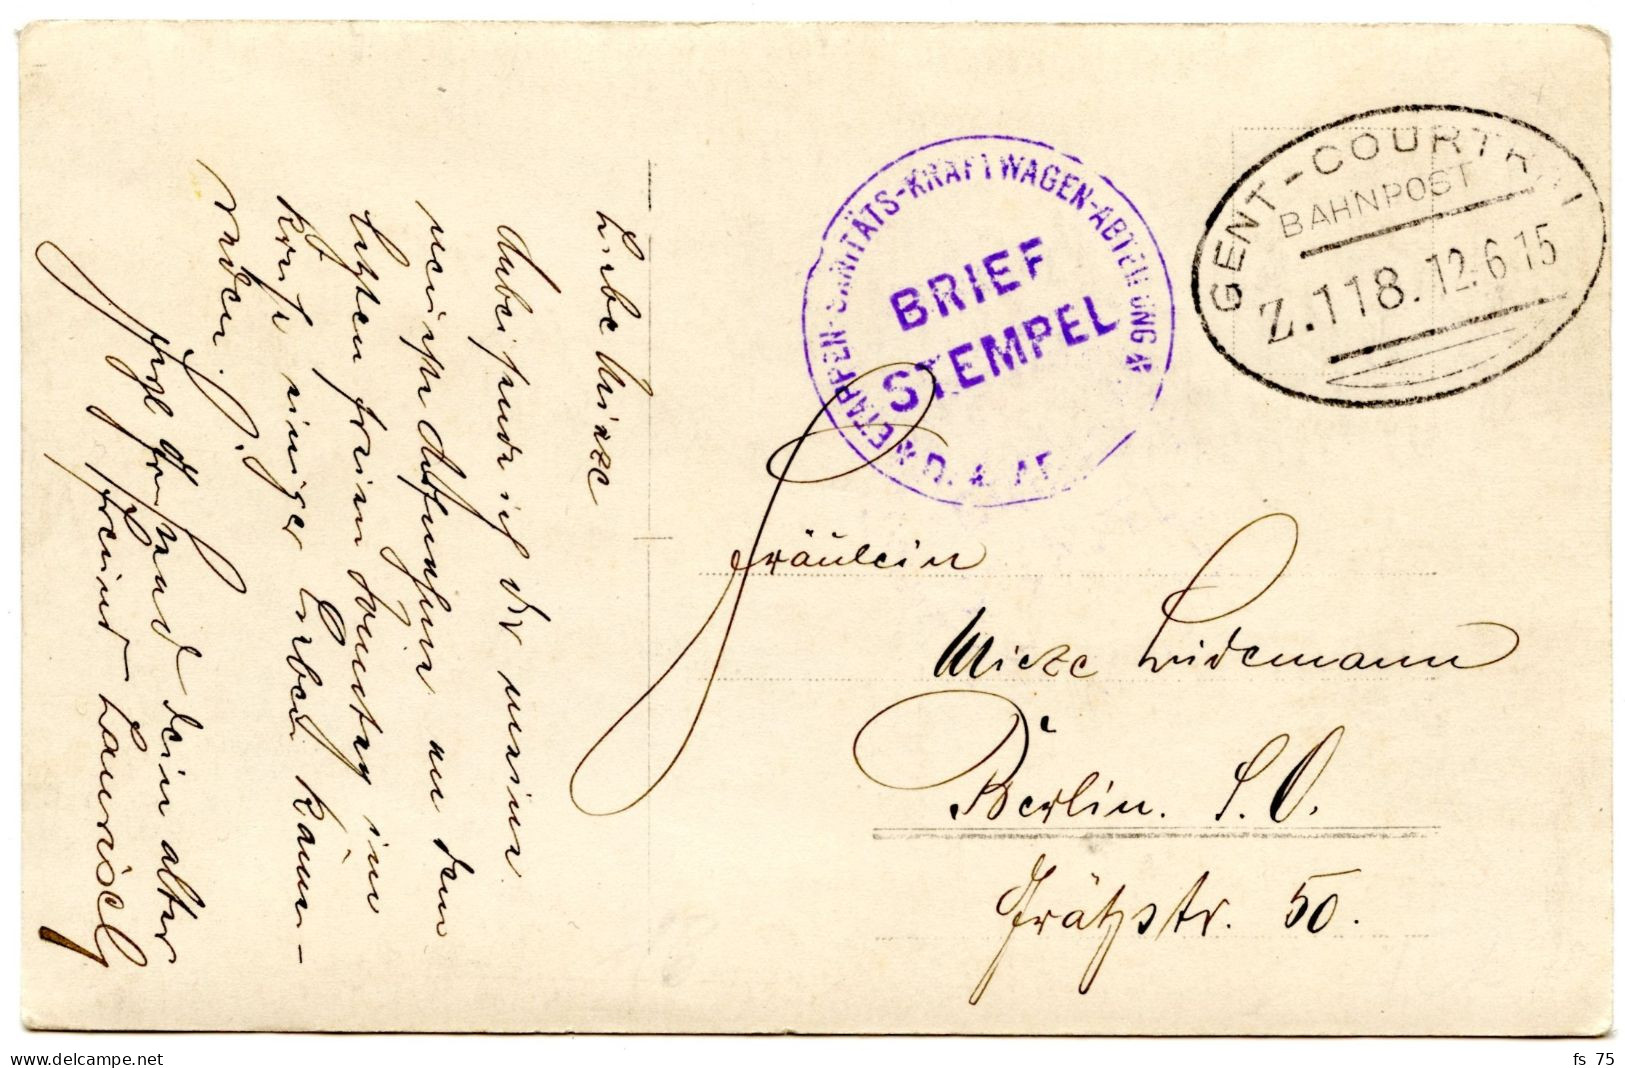 Liebe Mieze
Anbei sende ich Dir meine
neuste Aufnahme an dem
letzten freien Sonntag im
Kreise einiger Kame-
raden.
Herzl. Gruß sendet Dein alter
Freund
ETAPPEN-SANITÄTS-KRAFTWAGEN-ABTEILUNG
D. 4. AR
BRIEF
STEMPEL
GENT-COURTRAI
BAHNPOST
Z.118. 12.6.15
Fräulein
Mieze Lindemann
Berlin. S.O.
Grätzstr. 50.
delcampe.net
fs_75